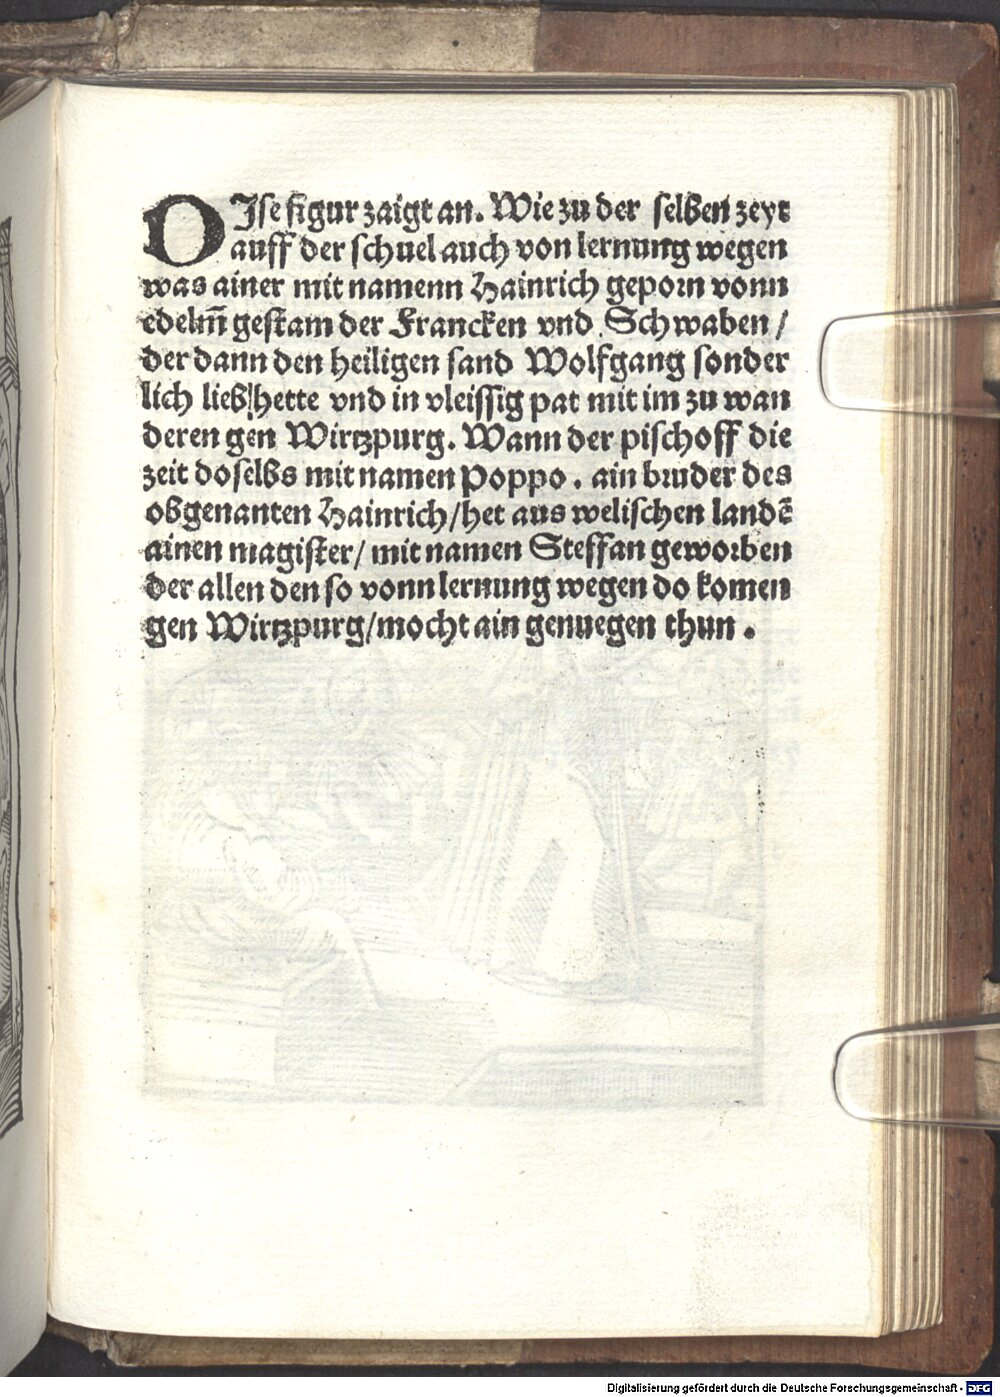 DJse figur zaigt an. Wie zu der selben zeyt
auff der schuel auch von lernung wegen
was ainer mit namenn Hainrich geporn vonn
edelm̄ gestam der Francken vnd Schwaben /
der dann den heiligen sand Wolfgang sonder
lich lieb hette vnd in vleissig pat mit im zu wan
deren gen Wirtzpurg. Wann der pischoff die
zeit doselbs mit namen Poppo. ain bruder des
obgenanten Hainrich/het aus welischen landē
ainen magister/ mit namen Steffan geworben
der allen den so vonn lernung wegen do komen
gen Wirtzpurg/mocht ain genuegen thun.
Digitalisierung gefördert durch die Deutsche Forschungsgemeinschaft - DFG